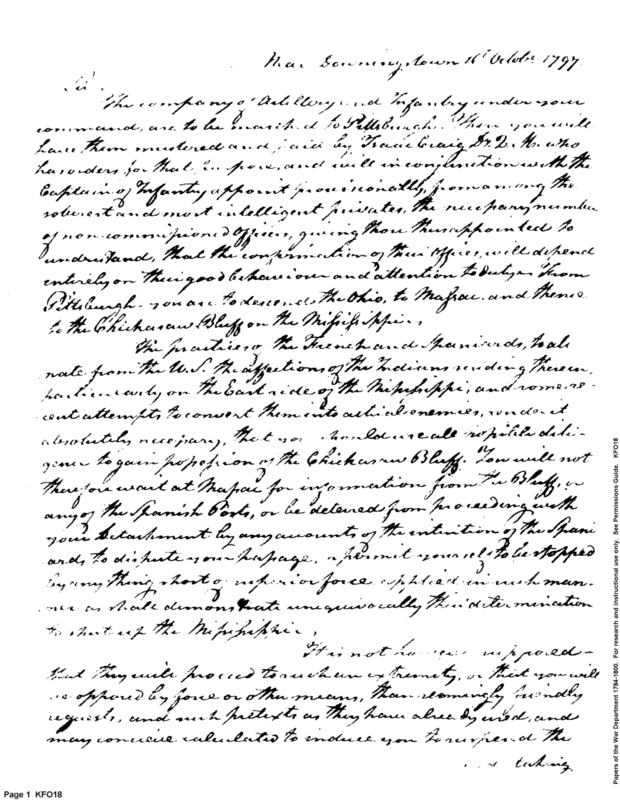 Near Downingstown 16t Octobr. 1797
Sir.
The company of Artillery and Infantry under your
command, are to be marched to Pittsburgh. There you will
have them mustered and paid by Isaac Craig Dr. Q. M. who
has orders for that purpose, and will in conjunction with the
Captain of Infantry appoint provisionally, from among the
soberest and most intelligent privates, the necessary number
of non-commissioned Officers, giving those thus appointed to
understand, that the confirmation of their offices, will depend
entirely on their good behaviour and attention to duty. From
Pittsburgh you are to descend the Ohio, to Massac, and thence
to the Chickasaw Bluff on the Mississippi.
The practices of the French and Spaniards, to alie
nate from the U.S. the affections of the Indians residing therein,
particularly on the East side of the Mississippi, and some re-
cent attempts to convert them into actual enemies, render it
absolutely necessary, that you should use all possible dili-
gence to gain possession of the Chickasaw Bluff. You will not
therefore wait at Massac for information from the Bluff, or
any of the Spanish Posts, or be detered from proceeding with
your Detachment by any accounts of the intention of the Spani
ards to dispute your passage, or permit yourself to be stopped
by any thing short of superior force applied in such man-
ner as shall demonstrate unequivocally their determination
to shut up the Mississippi.
It is not however supposed
that they will proceed to such an extremity, or that you will
be opposed by force or other means, than seemingly friendly
requests, and such pretexts as they have already used, and
may conceive calculated to induce you to suspend the
taking
Page 1 KFO18
Papers of the War Department 1784-1800. For research and instructional use only. See Permissions Guide. KFO18